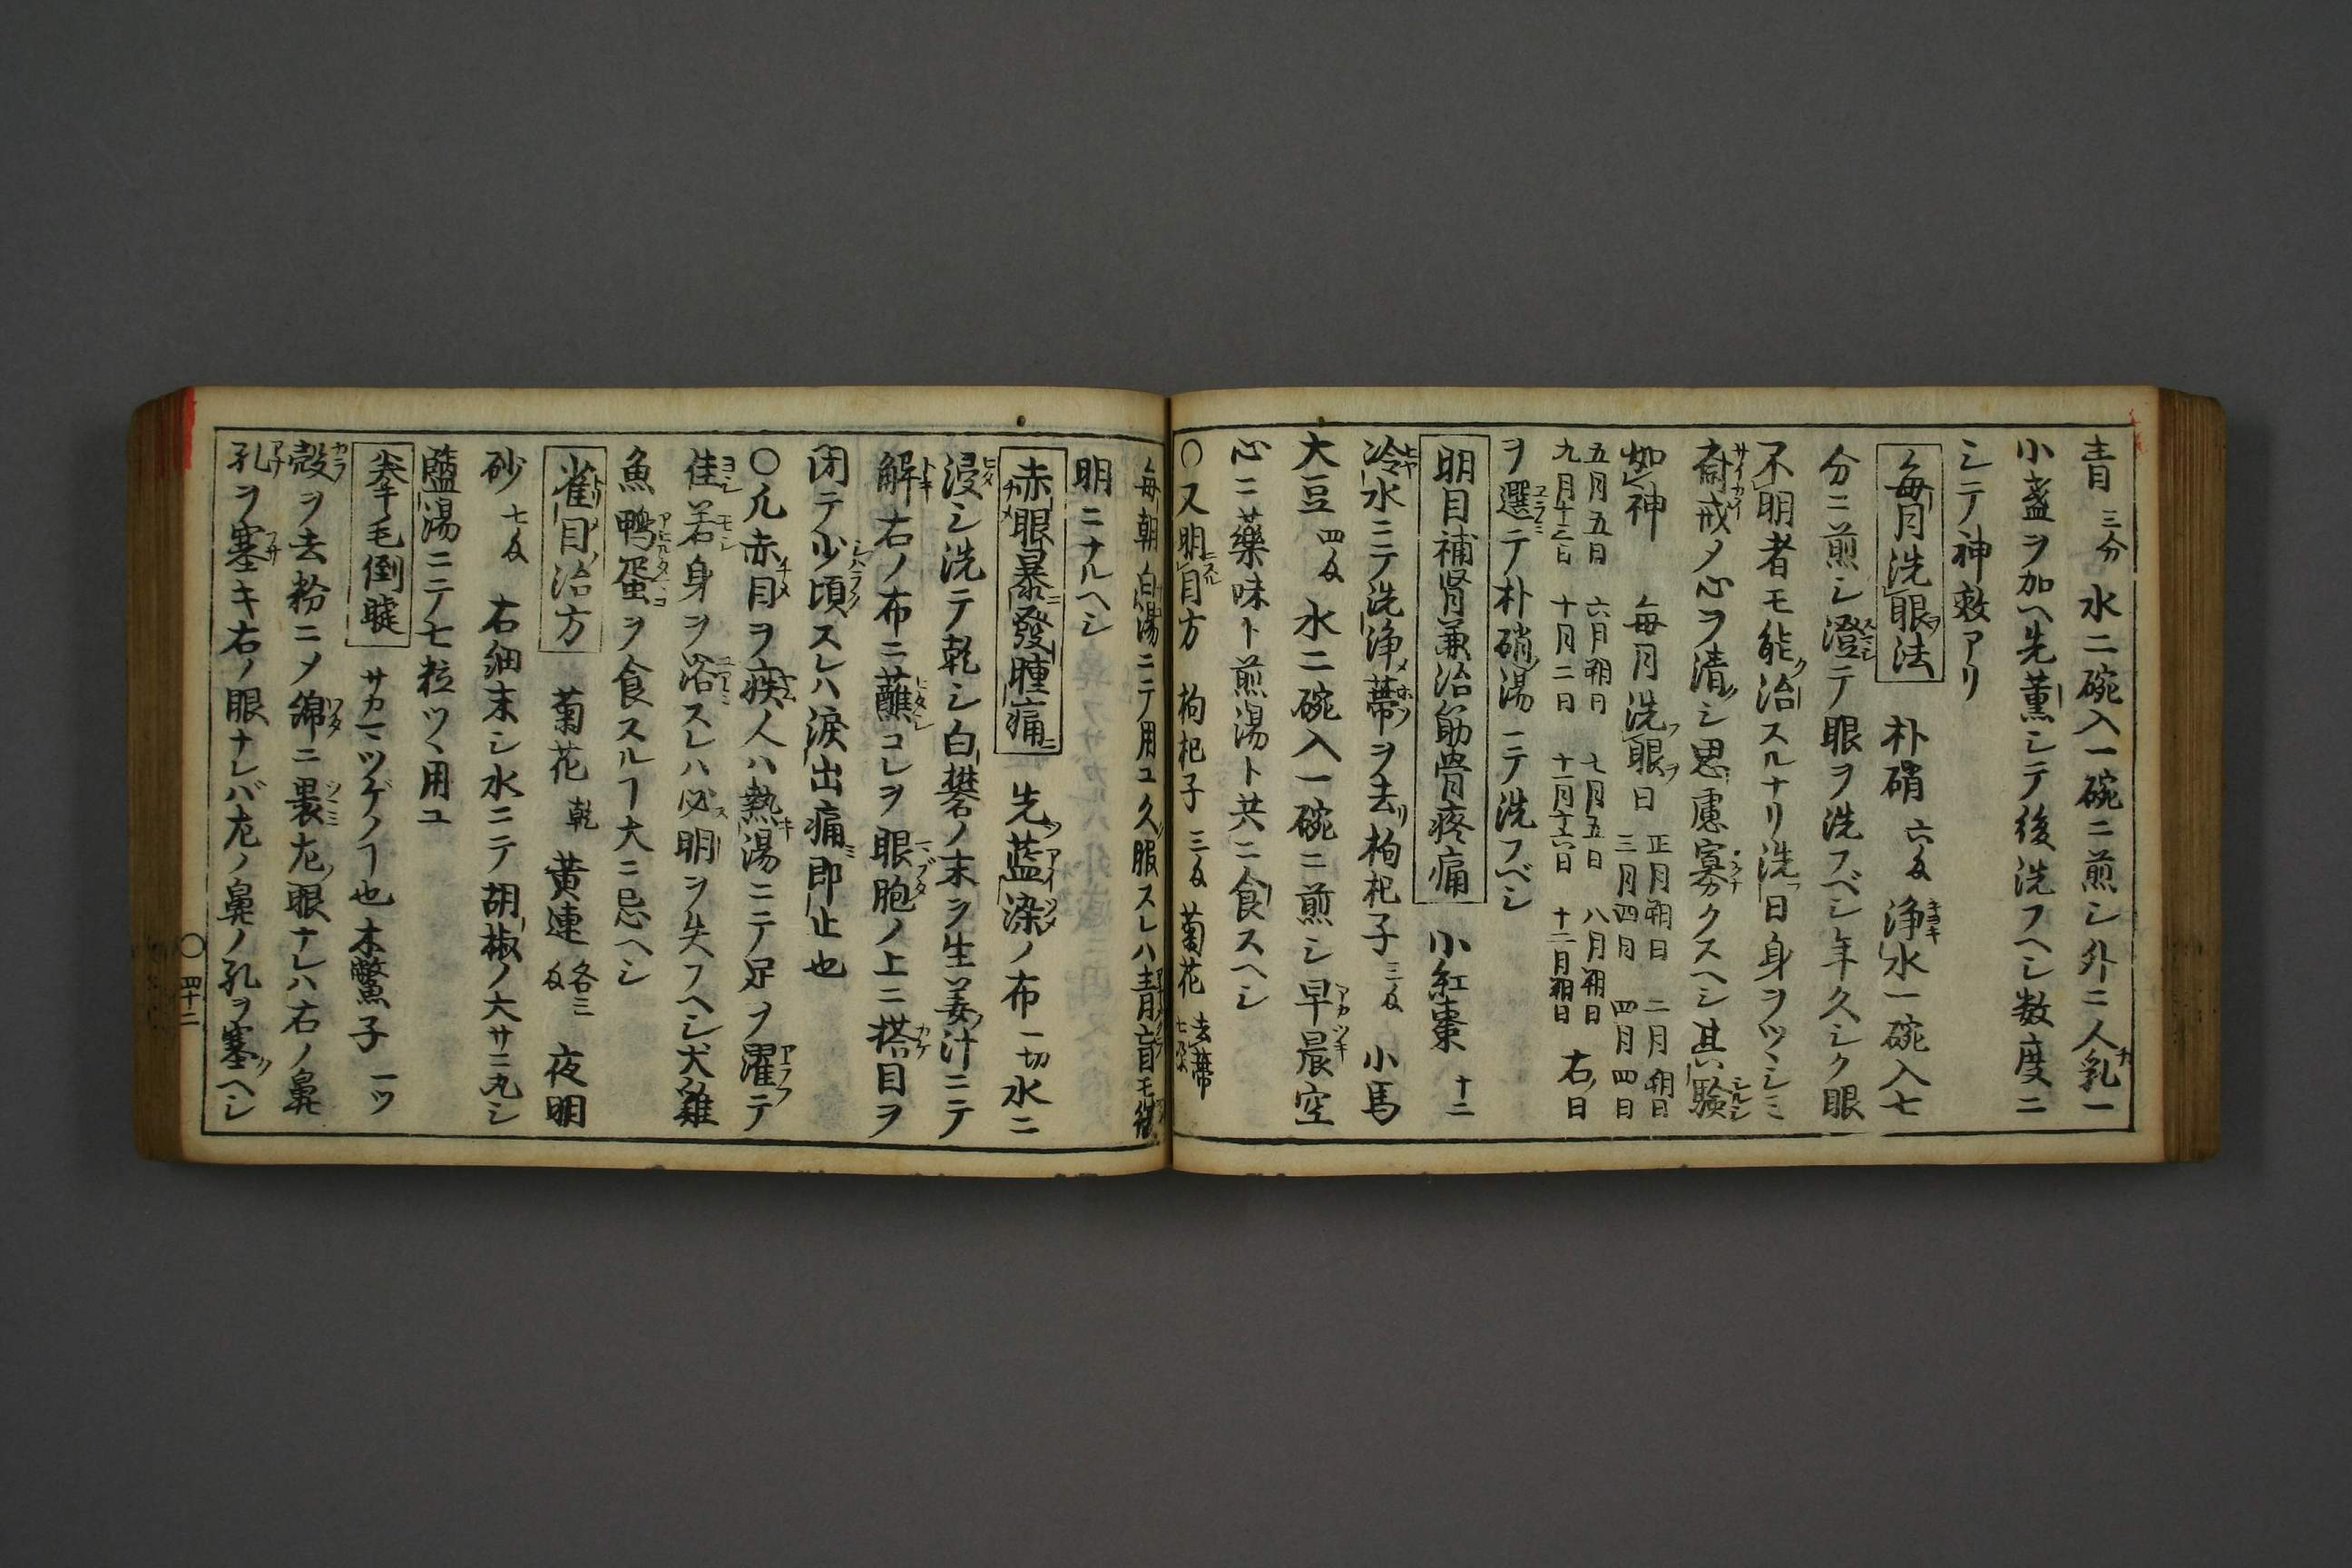 青三分 水二碗入一碗ニ煎シ外ニ人乳一
小盞ヲ加ヘ先薫シテ後洗フヘシ数度ニ
シテ神效アリ
毎月洗眼法 朴硝六匁 浄水一碗入七
分ニ煎シ澄テ眼ヲ洗フベシ年久シク眼
不明者モ能治スルナリ洗日身ヲツヽシミ
齋戒メ心ヲ清シ思慮寡クスヘシ其驗
如神 毎月洗眼日 正月朔日 二月朔日 三月四日 四月四日
五月五日 六月朔日 七月五日 八月朔日 九月十三日 十月二日 十一月十六日 十二月朔日 右ノ日
ヲ選テ朴硝湯ニテ洗フベシ
明目補腎兼治筋骨疼痛 小紅棗 十二
冷水ニテ洗浄蔕ヲ去枸杞子三匁 小馬
大豆四匁 水二碗入一碗ニ煎シ早晨空
心ニ藥味ト煎湯ト共ニ食スヘシ
〇又明目方 枸杞子三匁 菊花去蔕
毎朝白湯ニテ用ユ久服スレハ青盲モ復
明ニナルヘシ
赤眼暴發腫痛 先藍染ノ布一切水ニ
浸シ洗テ乾シ白礬ノ末ヲ生姜汁ニテ
解右ノ布ニ蘸コレヲ眼胞ノ上ニ搭目ヲ
閉テ少頃スレハ淚出痛即止也
〇凡赤目ヲ疾人ハ熱湯ニテ足ヲ濯テ
佳若身ヲ浴スレハ必明ヲ失フヘシ犬雞
魚鴨蛋ヲ食スルヿ大ニ忌ヘシ
雀目治方 菊花乾 黄連各三匁 夜明
砂七匁 右細末シ水ニテ胡椒ノ大サニ丸シ
鹽湯ニテ七粒ツヽ用ユ
拳毛倒睫 サカマツゲノヿ也木鱉子一ツ
殻ヲ去粉ニメ綿ニ裹左眼ナレハ右ノ鼻
孔ヲ塞キ右ノ眼ナレバ左ノ鼻ノ孔ヲ塞ヘシ
〇四十二